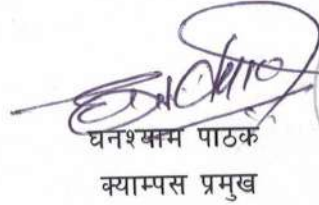 घनश्याम पाठक
क्याम्पस प्रमुख